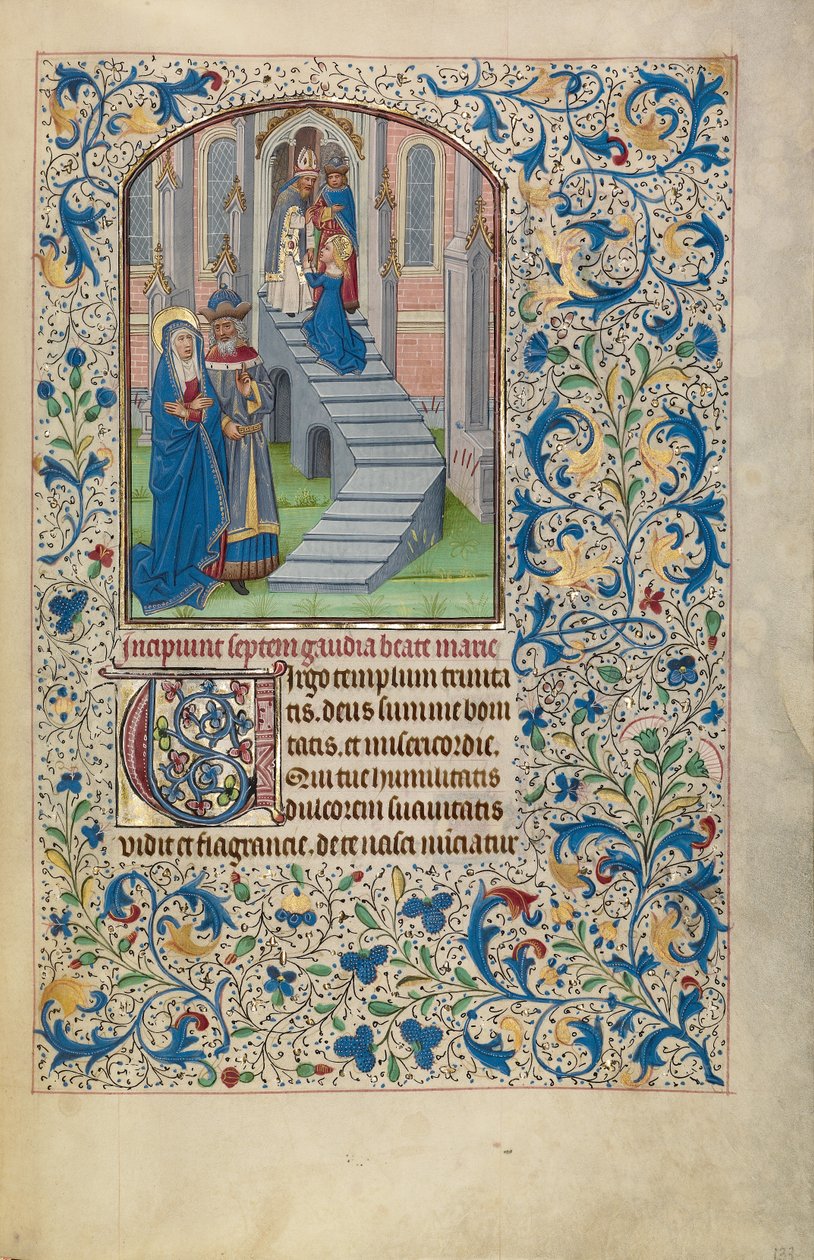 Incipiunt septem gaudia beate marie
Virgo templum trinita
tis. deus summe boni
tatis. et misericordie.
Qui tue humilitatis
dulcorem suauitatis
vidit et flagrancie. de te nasci nūciatur
133